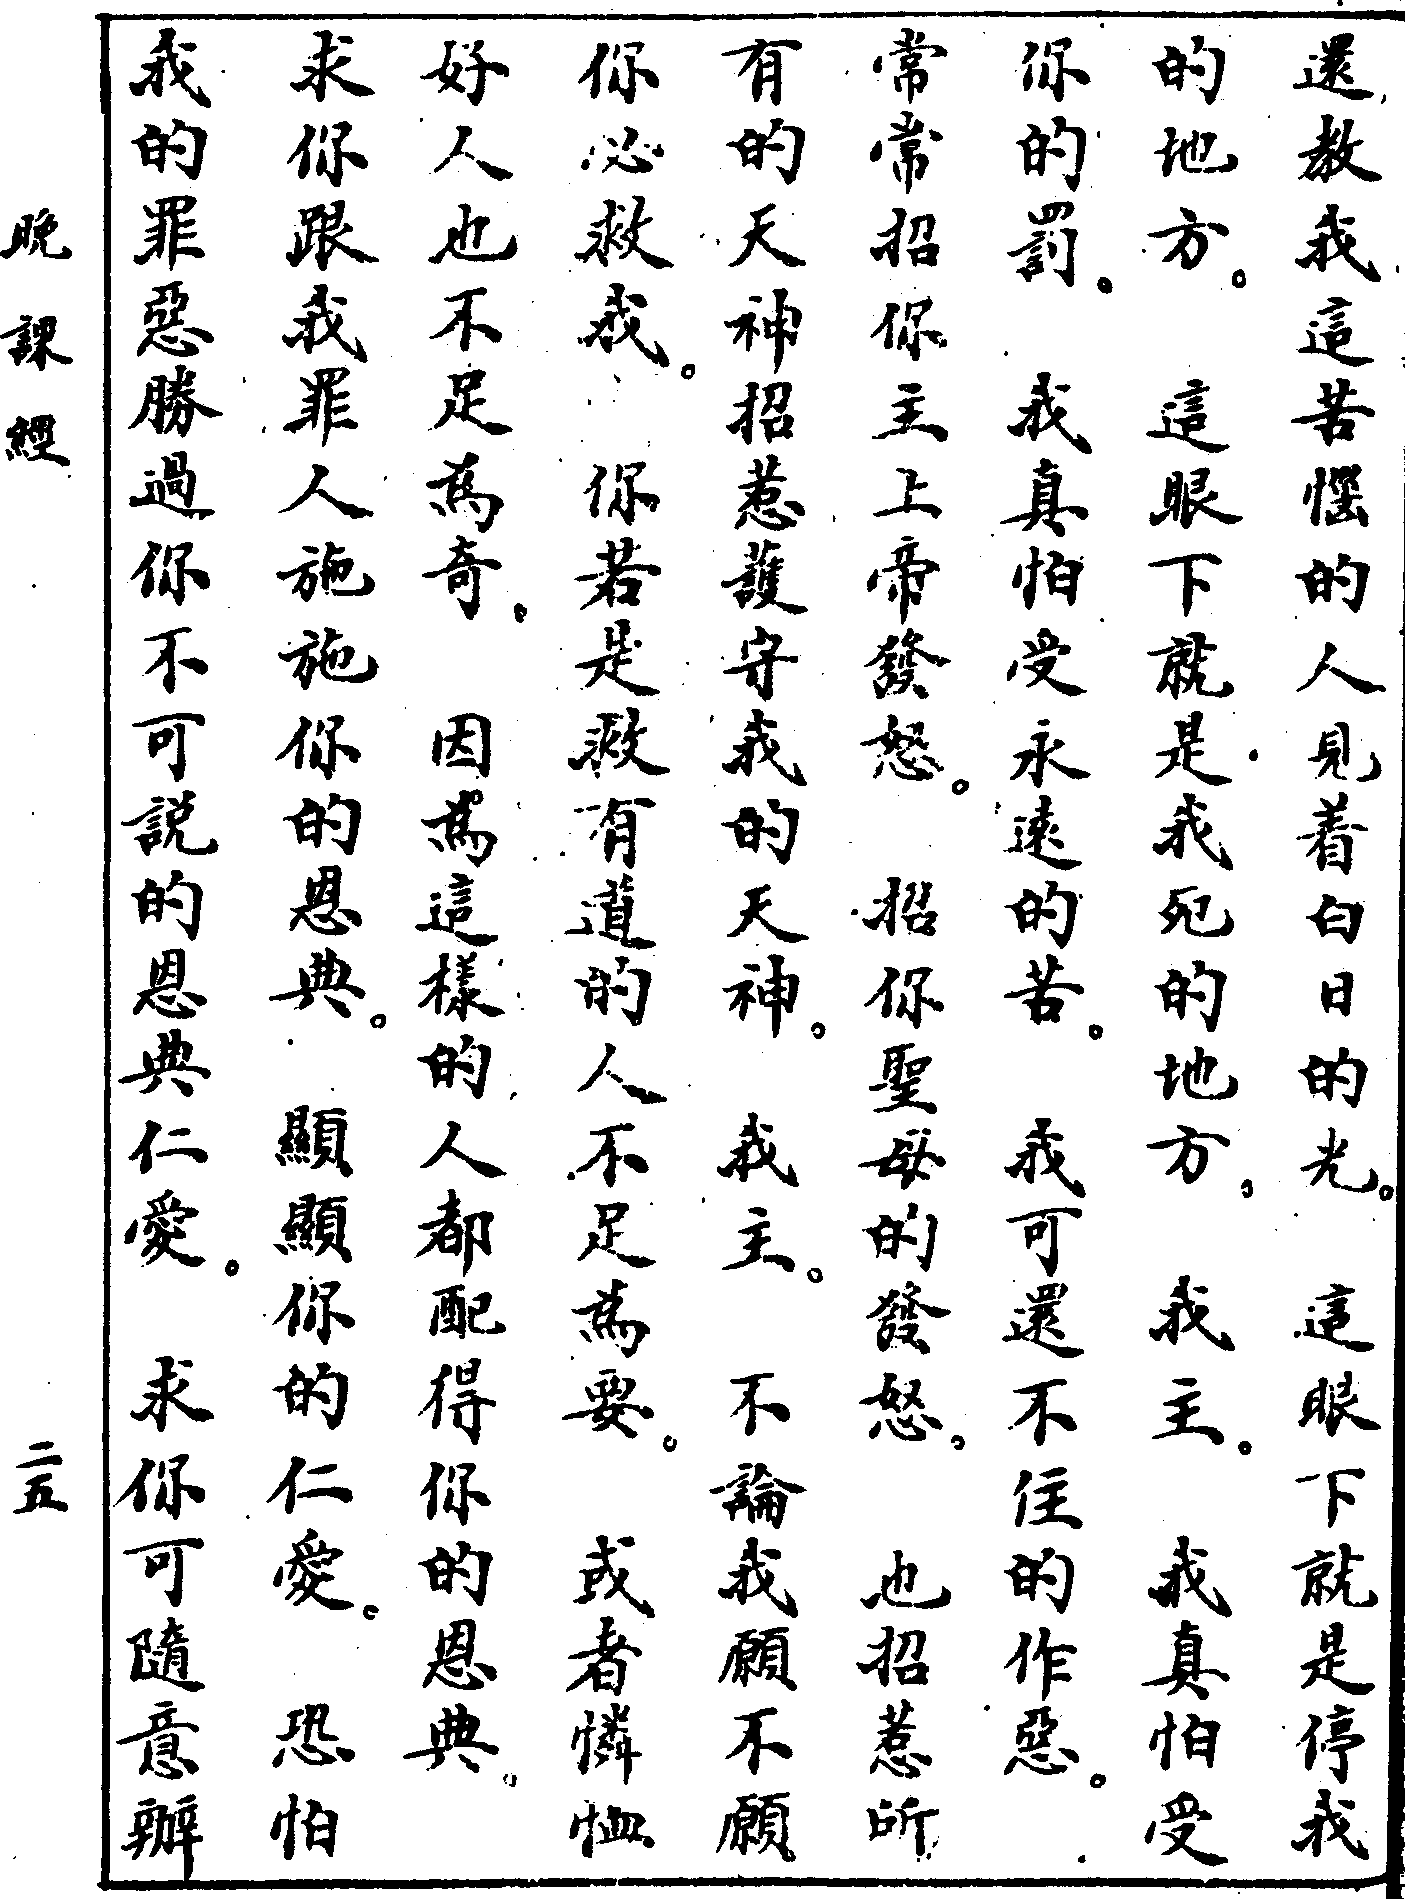 還教我這苦惱的人見着白日的光。這眼下就是停我
的地方。這眼下就是我死的地方。我主。我真怕受
你的罰。我真怕受永遠的苦。我可還不住的作惡。
常常招你主上帝發怒。招你聖母的發怒。也招惹所
有的天神招惹護守我的天神。我主。不論我願不願
你必救我。你若是救有道的人不足為要。或者憐恤
好人也不足為奇。因為這樣的人都配得你的恩典。
求你跟我罪人施施你的恩典。顯顯你的仁愛。恐怕
我的罪惡勝過你不可說的恩典仁愛。求你可隨意辦
晚課經
二五